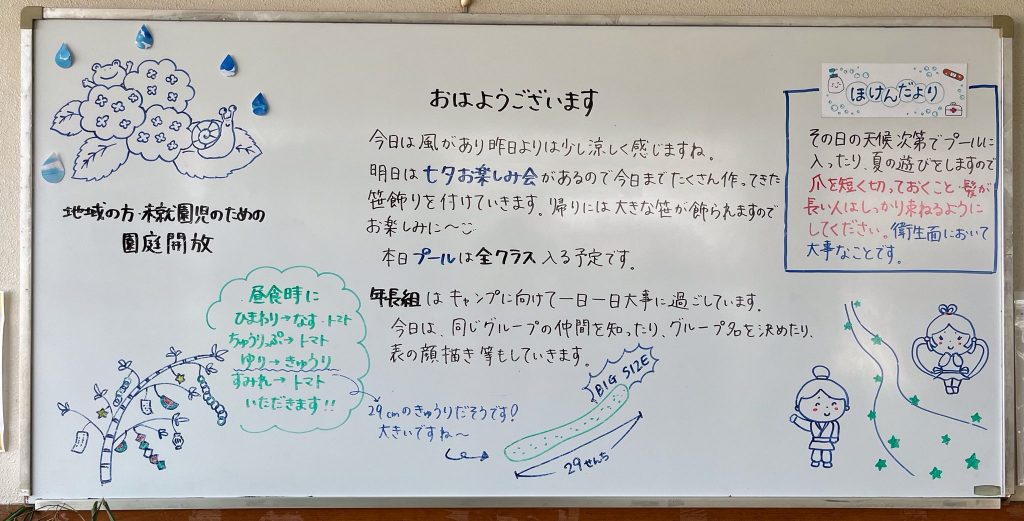 おはようございます
今日は風があり昨日よりは少し涼しく感じますね。
明日は七夕お楽しみ会があるので今日までたくさん作ってきた
笹飾りを付けていきます。帰りには大きな笹が飾られますので
お楽しみに〜
本日プールは全クラス入る予定です。
年長組はキャンプに向けて一日一日大事に過ごしています。
今日は、同じグループの仲間を知ったり、グループ名を決めたり、
表の顔描き等もしていきます。
地域の方・未就園児のための
園庭開放
昼食時に
ひまわり→なす・トマト
ちゅうりっぷ→トマト
ゆり→きゅうり
すみれ→トマト
いただきます!!
29cmのきゅうりだそうです!
大きいですね〜
BIG SIZE
29せんち
ほけんだより
その日の天候次第でプールに
入ったり、夏の遊びをしますので
爪を短く切っておくこと・髪が
長い人はしっかり束ねるように
してください。衛生面において
大事なことです。